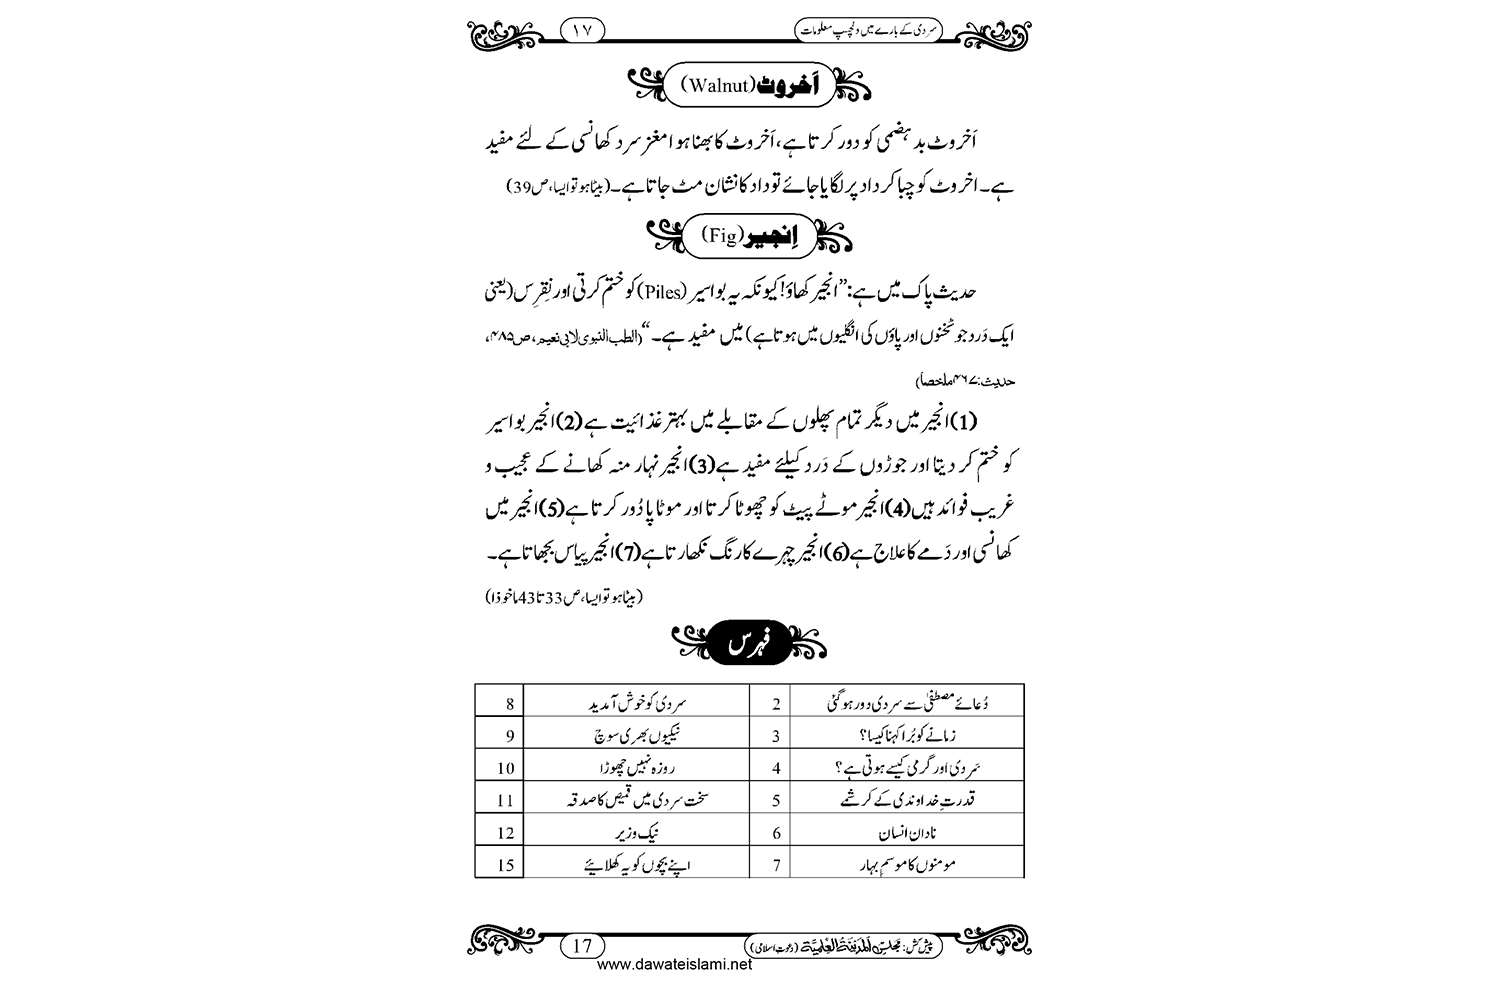 سردی کے بارے میں دلچسپ معلومات ۱۷
اَخروٹ (Walnut)
اَخروٹ بد ہضمی کو دور کرتا ہے، اَخروٹ کا بھنا ہوا مغز سرد کھانسی کے لئے مفید
ہے۔ اخروٹ کو چبا کر داد پر لگایا جائے تو داد کا نشان مٹ جاتا ہے۔ (بیٹا ہو تو ایسا، ص39)
اِنجیر (Fig)
حدیث پاک میں ہے: ”انجیر کھاؤ! کیونکہ یہ بواسیر (Piles) کو ختم کرتی اور نِقرِس (یعنی
ایک دَرد جو ٹخنوں اور پاؤں کی انگلیوں میں ہوتا ہے) میں مفید ہے۔“ (الطب النبوی لابی نعیم، ص۴۸۵،
حدیث:۴۶۷ ملخصاً)
(1) انجیر میں دیگر تمام پھلوں کے مقابلے میں بہتر غذائیت ہے (2) انجیر بواسیر
کو ختم کر دیتا اور جوڑوں کے دَرد کیلئے مفید ہے (3) انجیر نہار منہ کھانے کے عجیب و
غریب فوائد ہیں (4) انجیر موٹے پیٹ کو چھوٹا کرتا اور موٹاپا دُور کرتا ہے (5) انجیر میں
کھانسی اور دَمے کا علاج ہے (6) انجیر چہرے کا رنگ نکھارتا ہے (7) انجیر پیاس بجھاتا ہے۔
(بیٹا ہو تو ایسا، ص33 تا 43 ماخوذا)
فہرس
دُعائے مصطفٰی سے سردی دور ہو گئی 2 سردی کو خوش آمدید 8
زمانے کو بُرا کہنا کیسا؟ 3 نیکیوں بھری سوچ 9
سَردی اور گرمی کیسے ہوتی ہے؟ 4 روزہ نہیں چھوڑا 10
قدرتِ خداوندی کے کرشمے 5 سخت سردی میں قمیص کا صدقہ 11
نادان انسان 6 نیک وزیر 12
مومنوں کا موسمِ بہار 7 اپنے بچوں کو یہ کھلائیے 15
پیش کش: مجلس المدینۃ العلمیۃ (دعوتِ اسلامی) 17
www.dawateislami.net